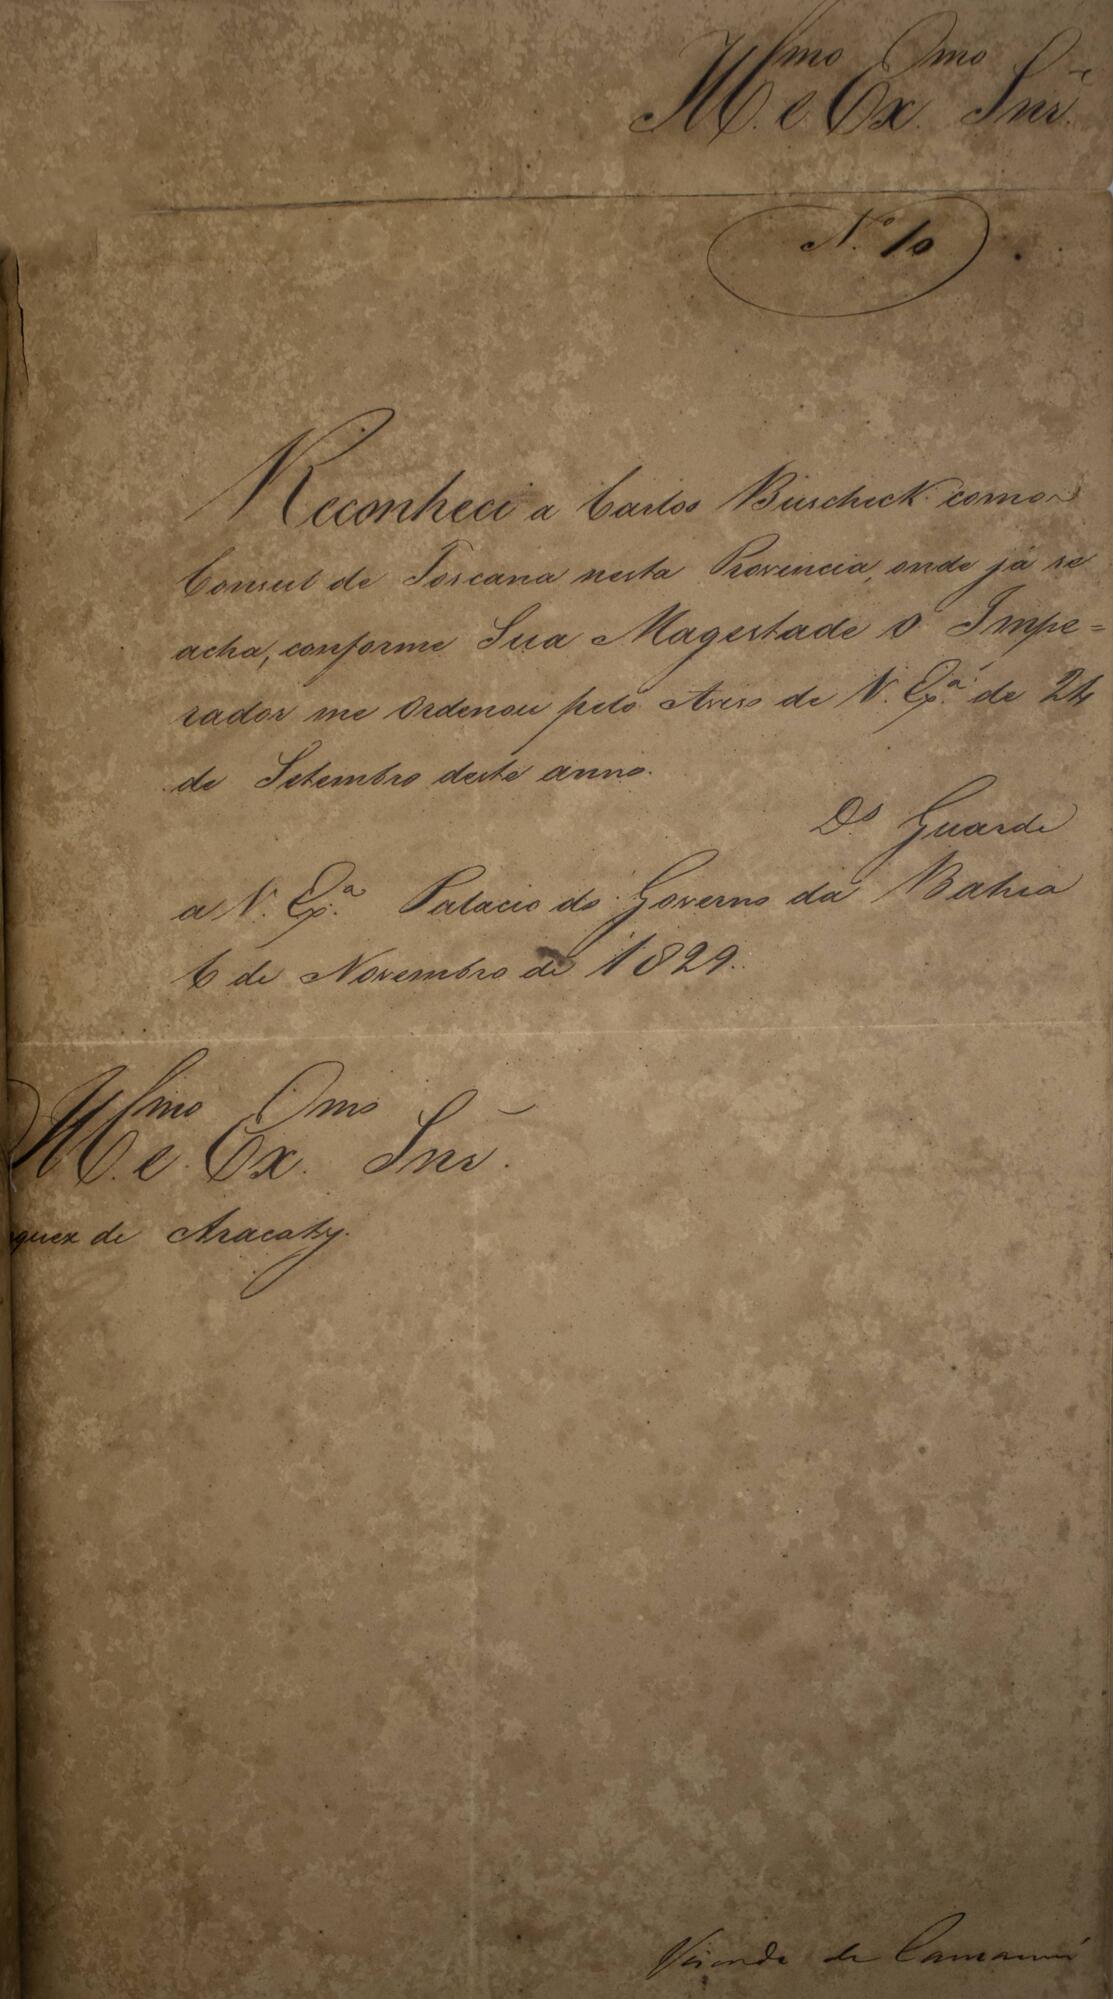 Ill.mo e Ex.mo Snr.
N.o 10
Reconheci a Carlos Buschick como
Consul de Toscana nesta Provincia, onde já se
acha, conforme Sua Magestade O Impe=
rador me Ordenou pelo Aviso de V. Ex.a de 24
de Setembro deste anno.
D.s Guarde
a V. Ex.a Palacio do Governo da Bahia
6 de Novembro de 1829.
Ill.mo e Ex.mo Snr.
quez de Aracaty.
Visconde de Camamú